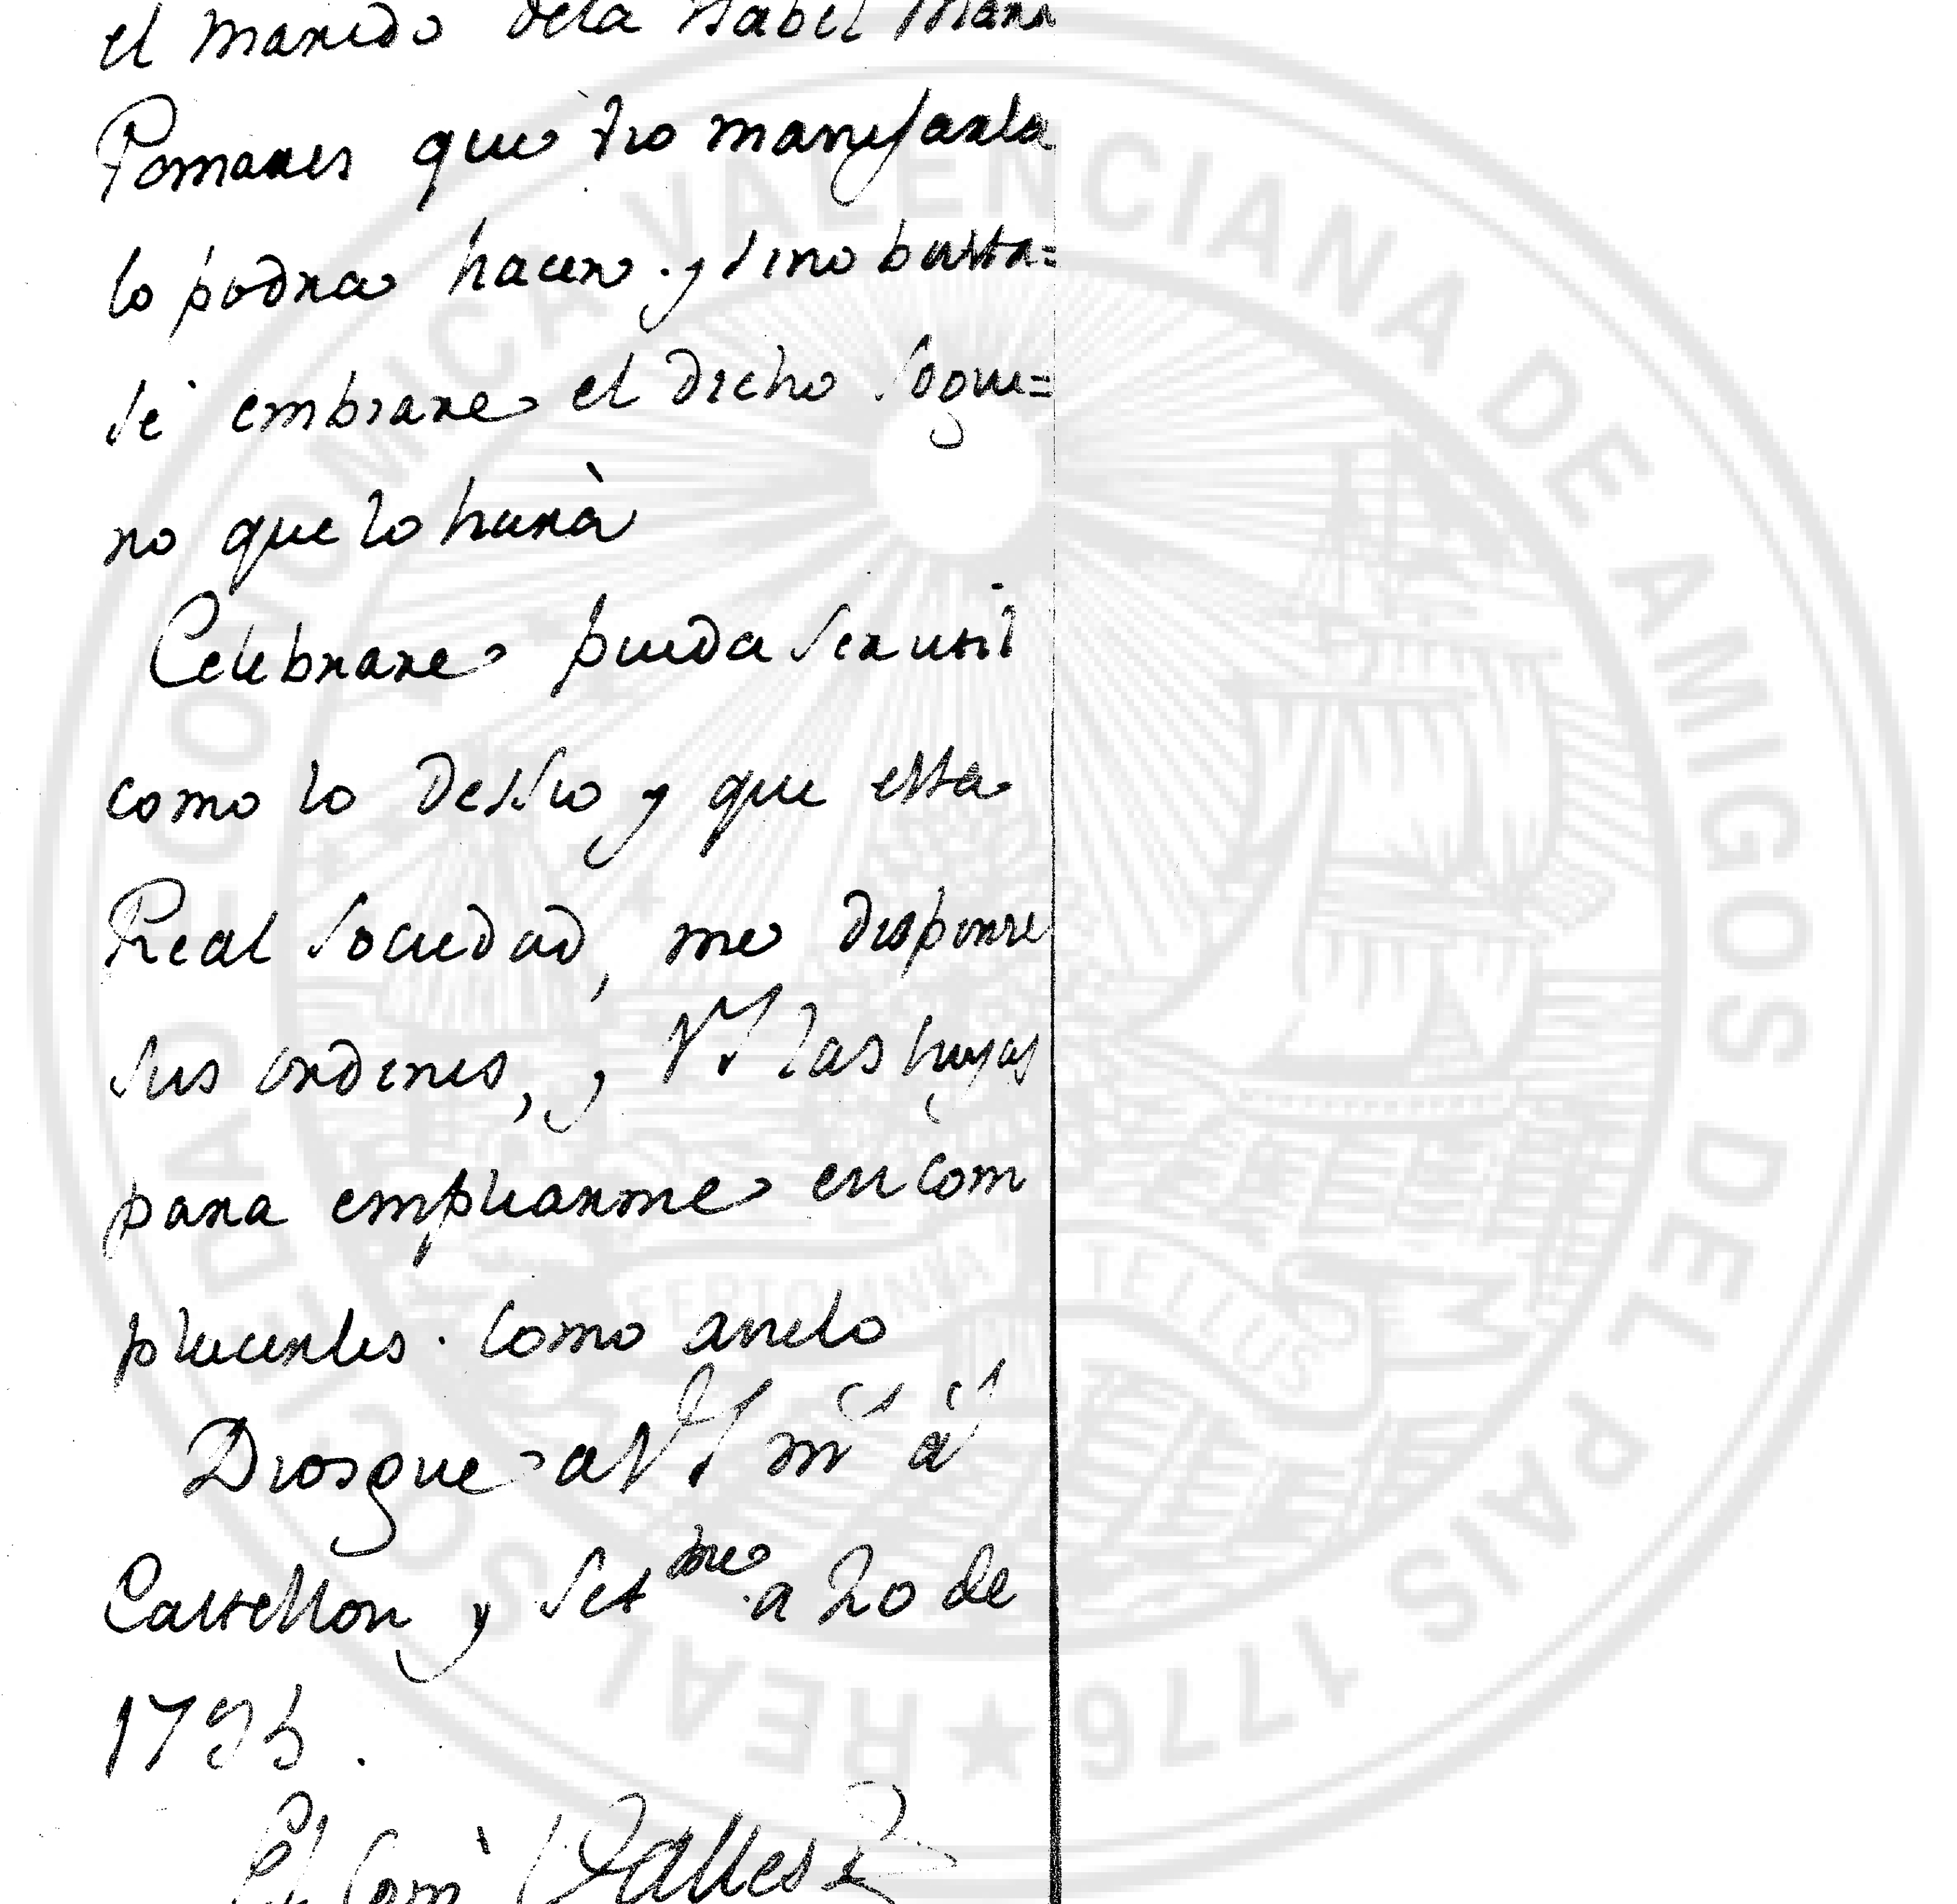 el marido dela Isabel Maria
Pomares que tio manejarla
lo podra hacer. y sino basta=
se embiare el dicho Sogue=
ro que lo hara
Celebrare pueda ser util
como lo desseo y que essa
Real Sociedad, me dispense
sus ordenes, y VS las suyas
para emplearme en com
placerles. Como anelo
Dios gue a VS ms as
Castellon y Setbre a 20 de
1795.
Valles
REAL SOCIEDAD ECONOMICA VALENCIANA DE AMIGOS DEL PAIS 1776